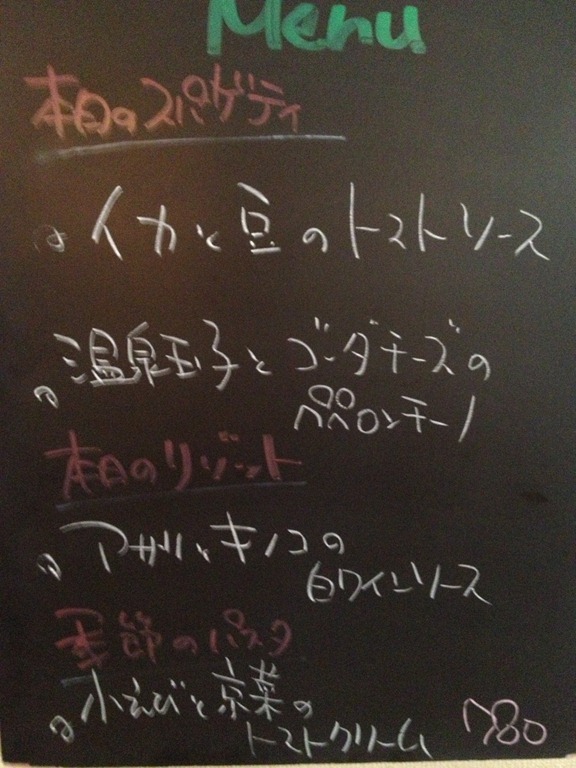 Menu
本日のスパゲティ
イカと豆のトマトソース
温泉玉子とゴーダチーズの
ペペロンチーノ
本日のリゾット
アサリとキノコの
白ワインソース
季節のパスタ
小えびと京菜の
トマトクリーム
780